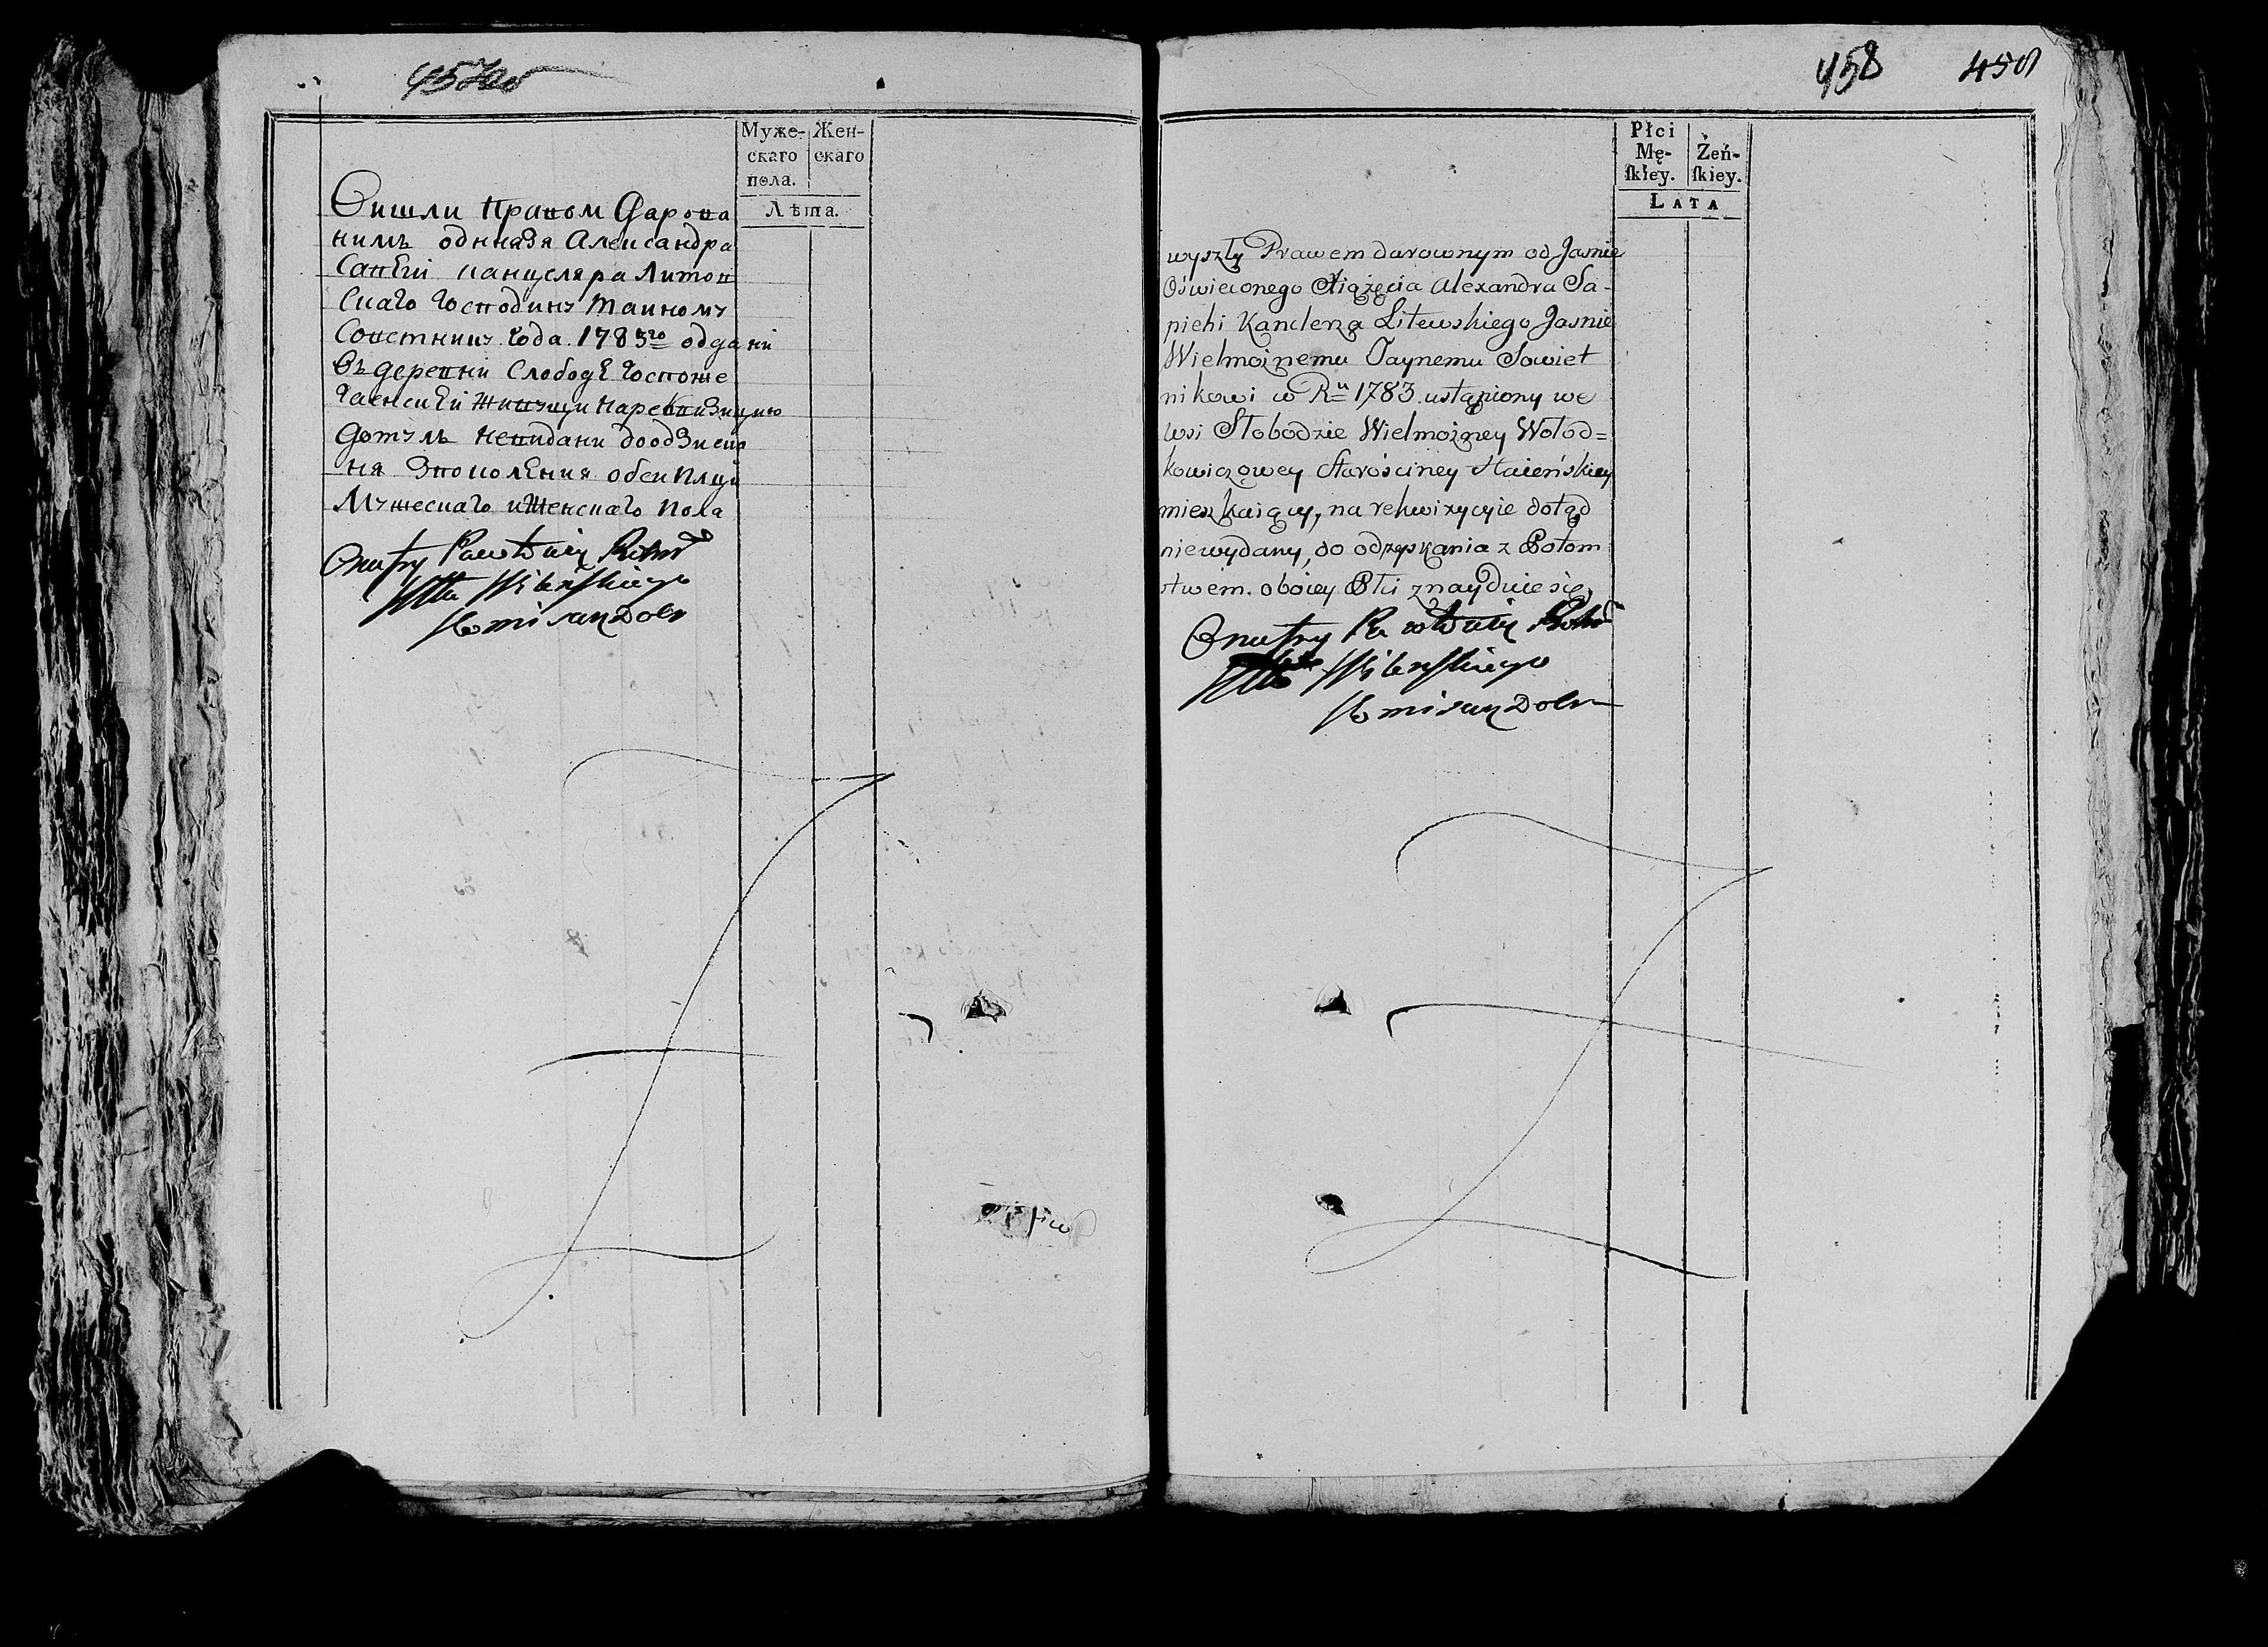 457об
Муже-
скаго
пола.
Жен-
скаго
Лѣта.
Вишли Правом Дарова
нимъ однязя Александра
Сапѣги канцсляра Литов
скаго Господину Таиному
Советнику Года. 1783го отдани
въ деревни Слободѣ Госпоже
Гаенскѣй живущи
дотуль невидани
обеи плци
Мужескаго иЖенскаго Пола
Onufry
Wileńskiego
458
Płci
Mę-
ſkiey.
Żeń-
ſkiey.
LATA
wyszły Prawem darownym od Jasnie
Oświeconego Xiążęcia Alexandra Sa-
piehi Kanclerza Litewskiego Jasnie
Wielmożnemu Taynemu Sowiet
nikowi w Ru 1783 ustąpiony we
wsi Słobodzie Wielmożney Wołod=
kowiczowey Starościney Haieńskiey
mieszkaiący, na rekwizycyie dotąd
niewydany, do odzyskania z Potom
stwem. oboiey Płci znayduie się,
Onufry
Wileńskiego